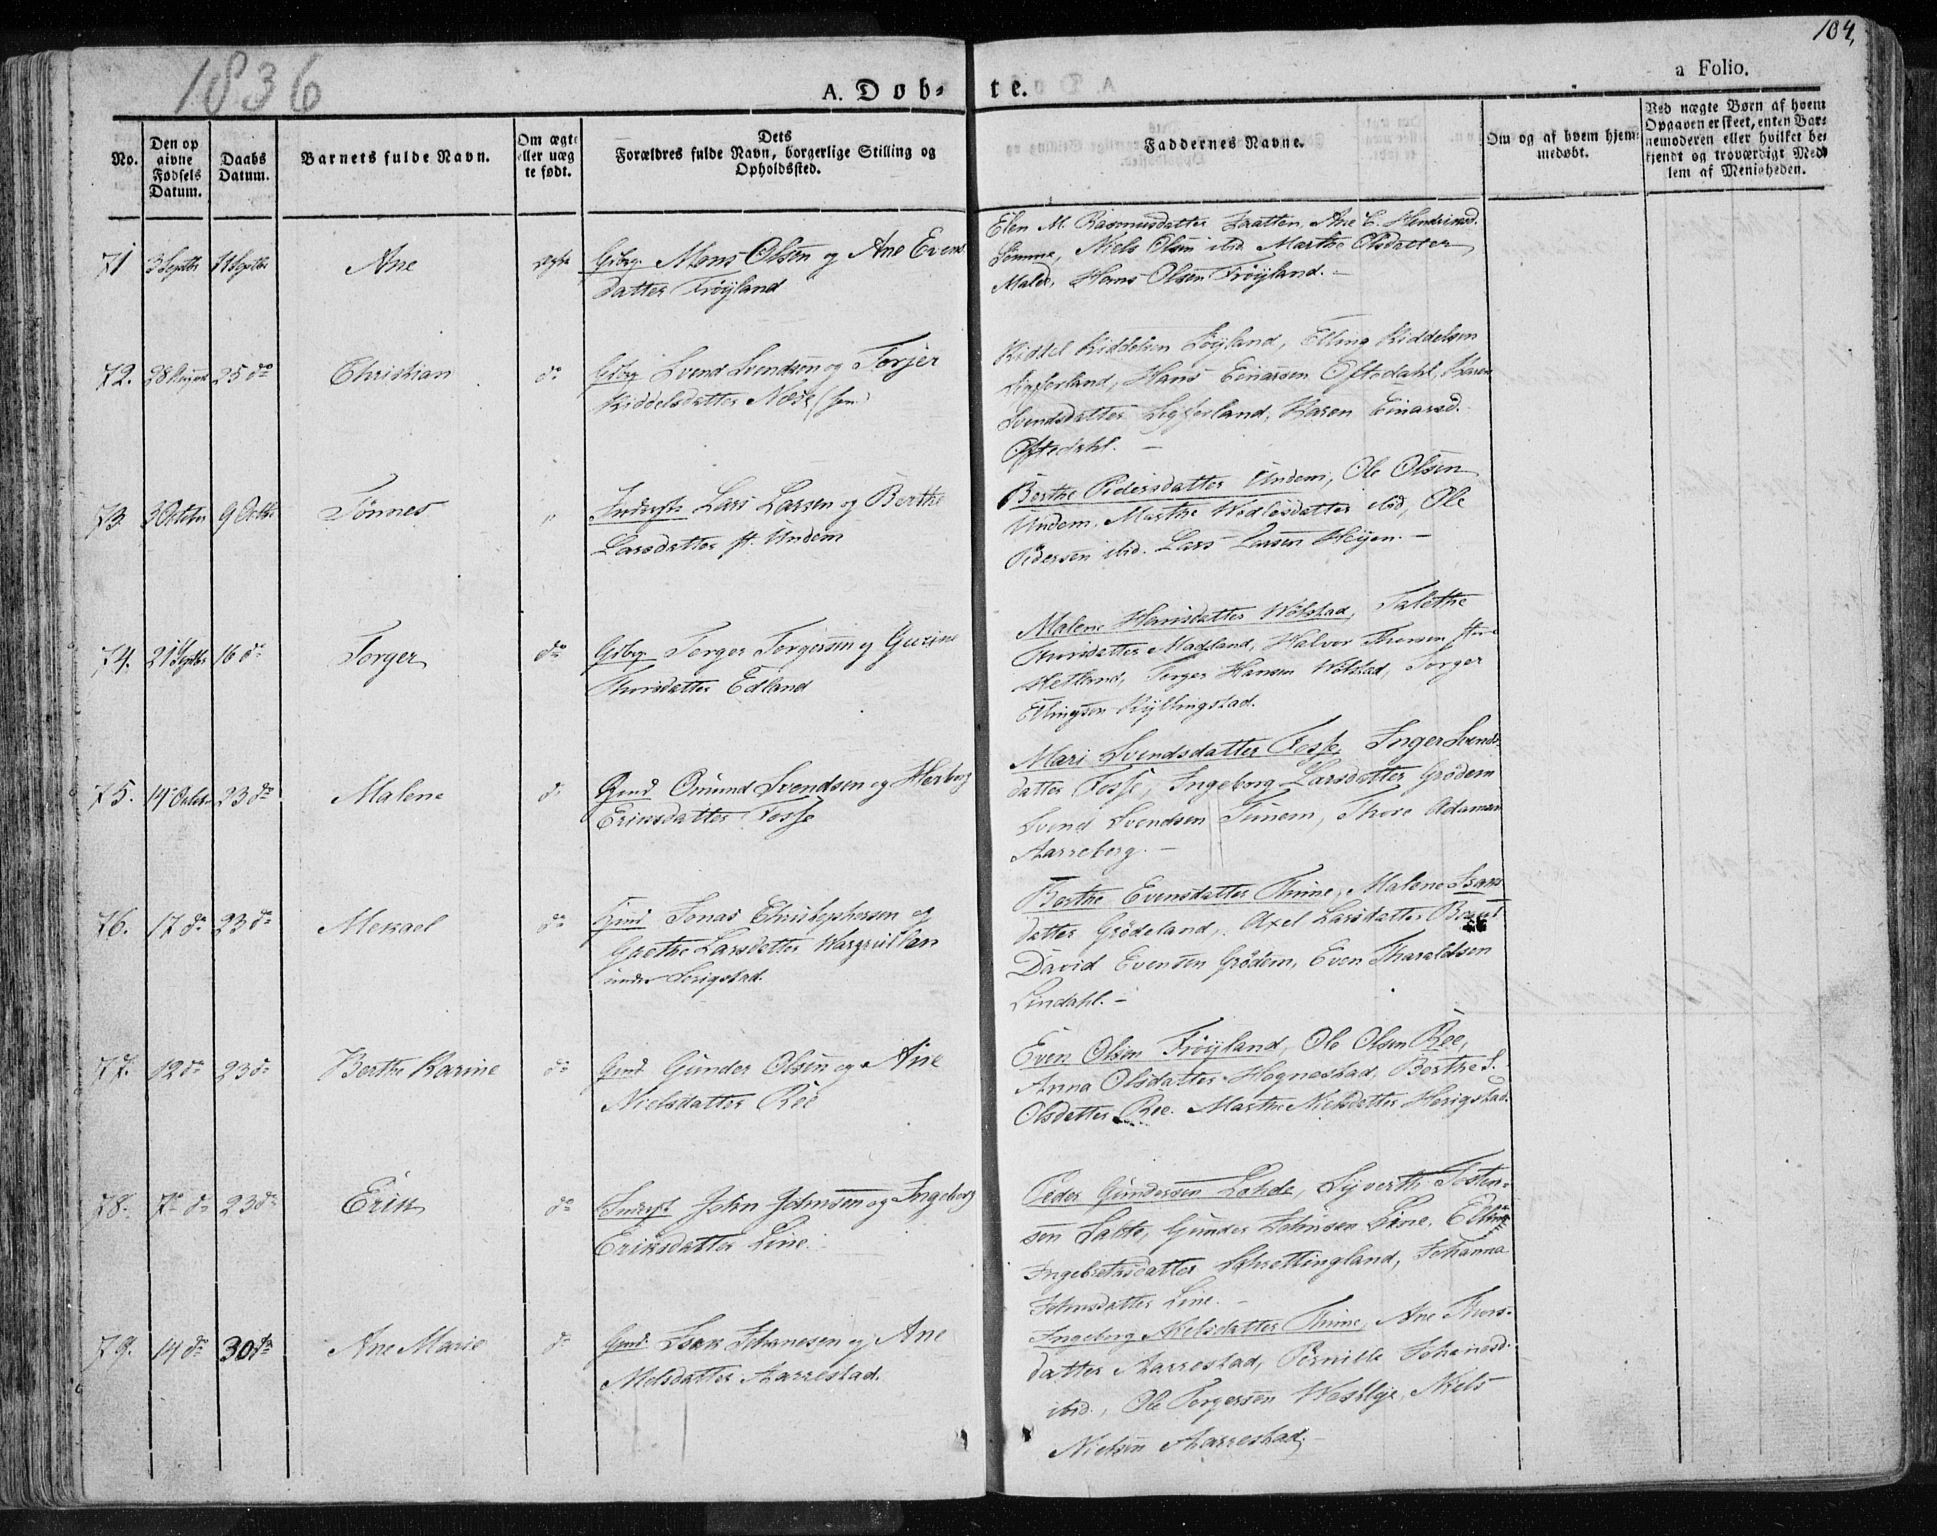 1836
104,
A. Døb-
te.
a Folio.
No.
Den op
givne
Fødsels
Datum.
Daabs
Datum.
Barnets fulde Navn.
Om ægte
eller uæg
te født.
Dets
Forældres fulde Navn, borgerlige Stilling og
Opholdssted.
Faddernes Navne.
Om og af hvem hjem
medøbt.
Ved uægte Børn af hvem
Opgaven er skeet, enten Bar-
nemoderen eller hvilket be
kjendt og troværdigt Med
lem af Menigheden.
71 3 Septbr 11 Septbr Ane ægte Gibrg. Mons Olsen og Ane Evens
datter Frøyland
Elen M. Rasmusdatter Ane C.
Lomme, Niels Olsen ibid Marthe Olsdatter
Maler, Hans Olsen Frøyland. —
72. 28 August 25 do Christian do Gibrg Svend Svendsen og Torjer
Kiddelsdatter Næse
Kiddel Kiddelsen Løyland, Elling Kiddelsen
Ligferland, Hans Einarsen Oftedahl, Karen
Svendsdatter Ligferland, Karen Einarsd.
Oftedahl. —
73 3 Octbr 9 Octbr Tønnes " Inderst Lars Larsen og Berthe
Larsdatter pl. Undem
Berthe Pedersdatter Undem, Ole Olsen
Undem, Marthe ibid, Ole
Pedersen ibid. Lars Larsen Høyen. —
74. 21 Septbr 16 do Torger do Gibrg Torger Torgersen og Gurine
Thorsdatter Edland
Malene Hansdatter Wølstad, Talethe
Thorsdatter Madland, Halvor Thorsen
Hetland, Torger Hansen Wølstad, Torger
Ellingsen Kyllingstad.
75. 14 Octbr 23 do Malene do Gmd Omund Svendsen og Herborg
Eriksdatter Fosse
Mari Svendsdatter Fosse, Inger Svends-
datter Fosse, Ingeborg Larsdatter Grødem
Svend Svendsen Tunem, Thore Adamsen
Aarreberg. —
76. 17 do 23 do Mekael do Gmd Jonas Christophersen og
Grethe Larsdatter
under Serigstad.
Berthe Evensdatter Thime, Malene
datter Grødeland, Axel Larsdatter
David Evensen Grødem, Even Tharaldsen
Lindahl. —
77. 12 do 23 do Berthe Karine do Gmd Gunder Olsen og Ane
Nielsdatter Ree
Even Olsen Frøyland, Ole Olsen Ree,
Anna Olsdatter Hognestad, Berthe S.
Olsdatter Ree. Marthe Nielsdatter Herigstad
78. 7 do 23 do Erik do Inderst John Johnsen og Ingeborg
Eriksdatter Line
Peder Gundersen Lohde, Syverth Tosten-
sen Salte, Gunder Johnsen Line,
Ingebretsdatter Schrettingland, Johanna
Johnsdatter Line. —
79. 14 do 30 do Ane Marie do Gmd Isak Johanesen og Ane
Melsdatter Aarrestad.
Ingeborg Nielsdatter Thime, Ane Thors-
datter Aarrestad, Pernille Johanesd.
ibid., Ole Torgersen Westlye, Niels
Nielsen Aarrestad. —